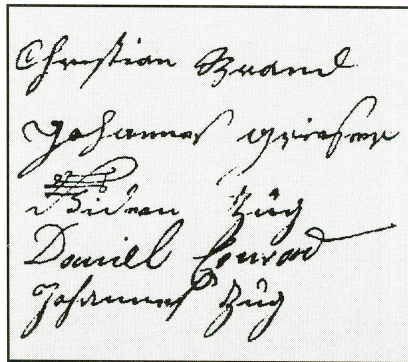 Christian Brand
Johannes Grieser
Gideon Zug
Daniel Conrad
Johannes Zug